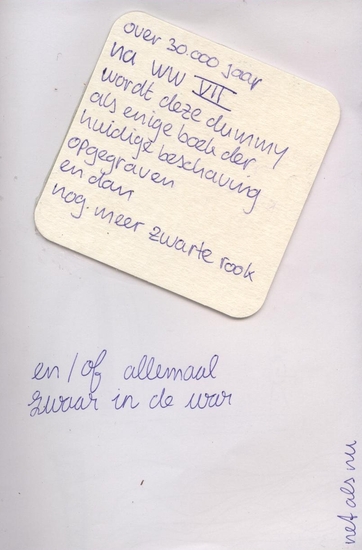 over 30.000 jaar
na WW VII
wordt deze dummy
als enige boek der
huidige beschaving
opgegraven
en dan
nog meer zwarte rook
en/of allemaal
zwaar in de war
net als nu